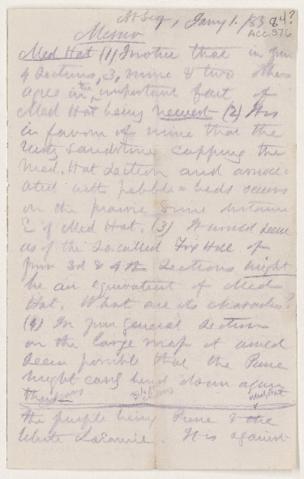 Jany 1. /83
84?
ACC.976
Memo
Med Hat (1) I notice that in your
4 sections, 3, mine & two others
agree in the important fact of
Med Hat being newest (2) It is
in favour of mine that the
Sandstone capping the
Med. Hat Section and associ-
ated with pebble beds occurs
on the prairie some distance
E of Med Hat. (3) It would seem
as if the so called Fox Hill of
your 3rd & 4th Sections might
be an equivalent of Med
Hat. What are its characters?
(4) In your general section
on the large map it would
seem possible that the Pierre
might bend down again
thus
Med Hat
The purple being Pierre & the
white Laramie. It is against